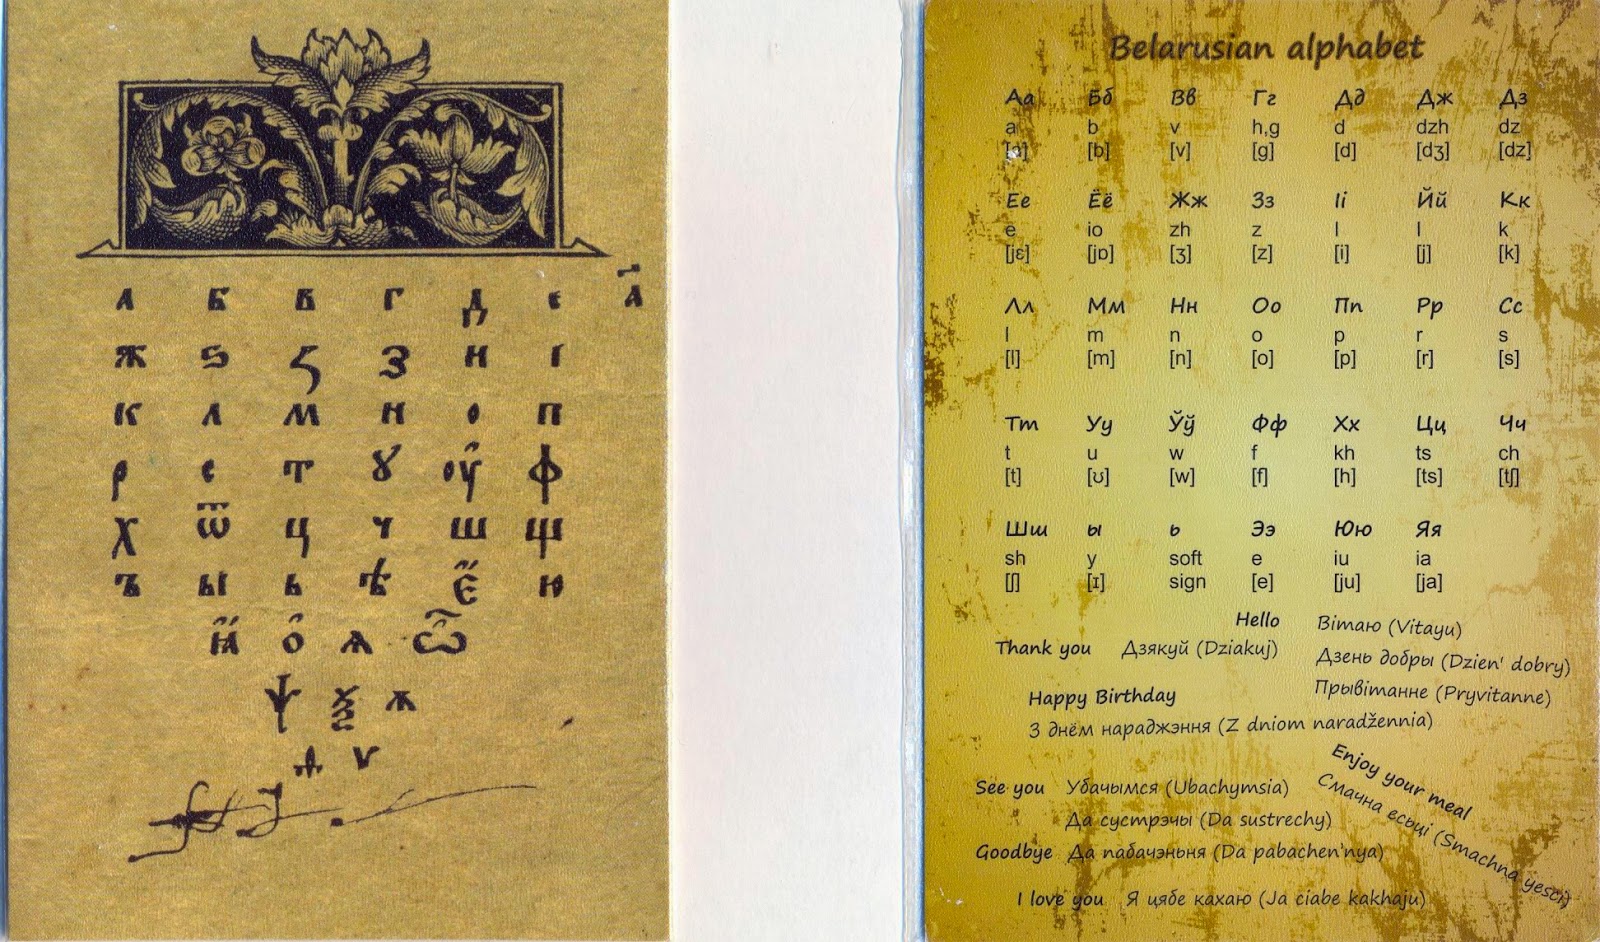 а б в г д е
ж ѕ ꙁ з и і
к л м н о п
р с т ꙋ оу ф
х ѿ ц ч ш щ
ъ ы ь ѣ є ю
ꙗ о ѧ ѽ
ѱ ѯ ѫ
ѵ
Belarusian alphabet
Аа Бб Вв Гг Дд Дж Дз
a b v h,g d dzh dz
[b] [v] [g] [d] [dʒ] [dz]
Ее Ёё Жж Зз Іі Йй Кк
e io zh z I I k
[jɛ] [jɒ] [ʒ] [z] [i] [j] [k]
Лл Мм Нн Оо Пп Рр Сс
l m n o p r s
[l] [m] [n] [o] [p] [r] [s]
Тт Уу Ўў Фф Хх Цц Чч
t u w f kh ts ch
[t] [ʊ] [w] [f] [h] [ts] [tʃ]
Шш ы ь Ээ Юю Яя
sh y soft e iu ia
[ʃ] [ɪ] sign [e] [ju] [ja]
Hello Вітаю (Vitayu)
Thank you Дзякуй (Dziakuj)
Дзень добры (Dzien' dobry)
Прывітанне (Pryvitanne)
Happy Birthday
З днём нараджэння (Z dniom naradžennia)
Enjoy your meal
Смачна есьці (Smachna yesci)
See you Убачымся (Ubachymsia)
Да сустрэчы (Da sustrechy)
Goodbye Да пабачэньня (Da pabachen'nya)
I love you Я цябе кахаю (Ja ciabe kakhaju)